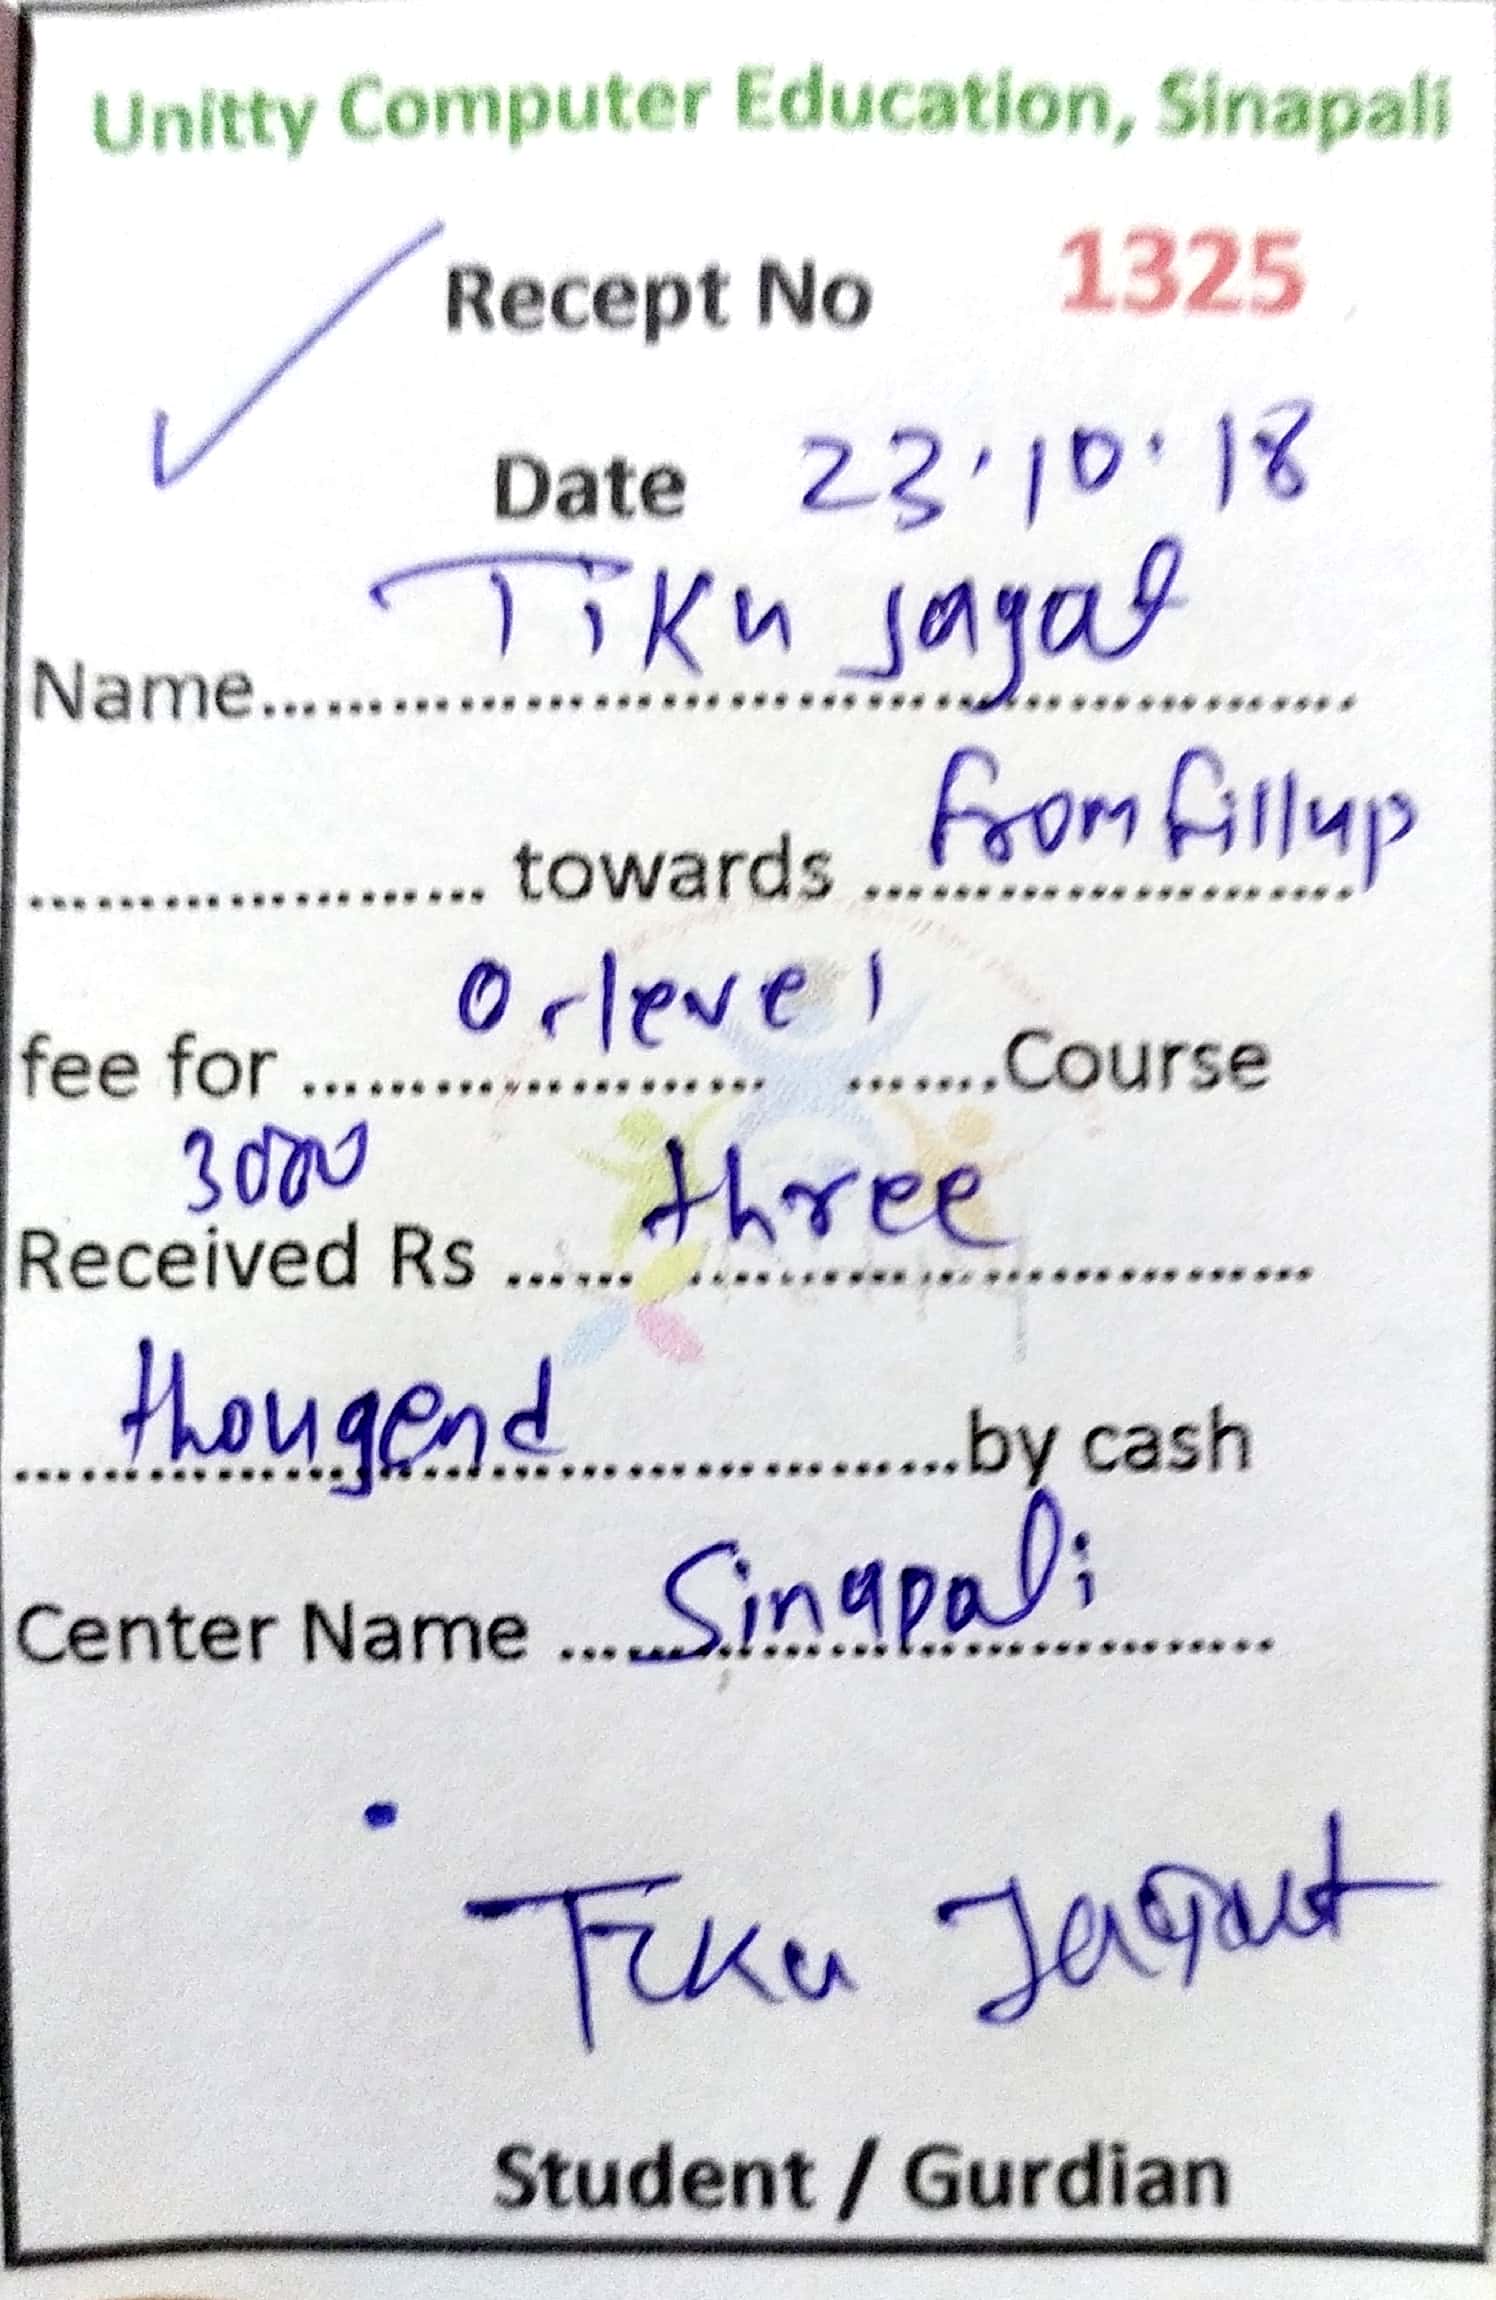 Unitty Computer Education, Sinapali
Recept No 1325
Date 23.10.18
Tiku Jagat
Name..............................................................
from fillup
.................... towards ......................
O-level
fee for .................... .......Course
3000 three
Received Rs ...... ............................
thougend
..........................................by cash
Center Name ....Sinapali..........
Tiku Jagat
Student / Gurdian